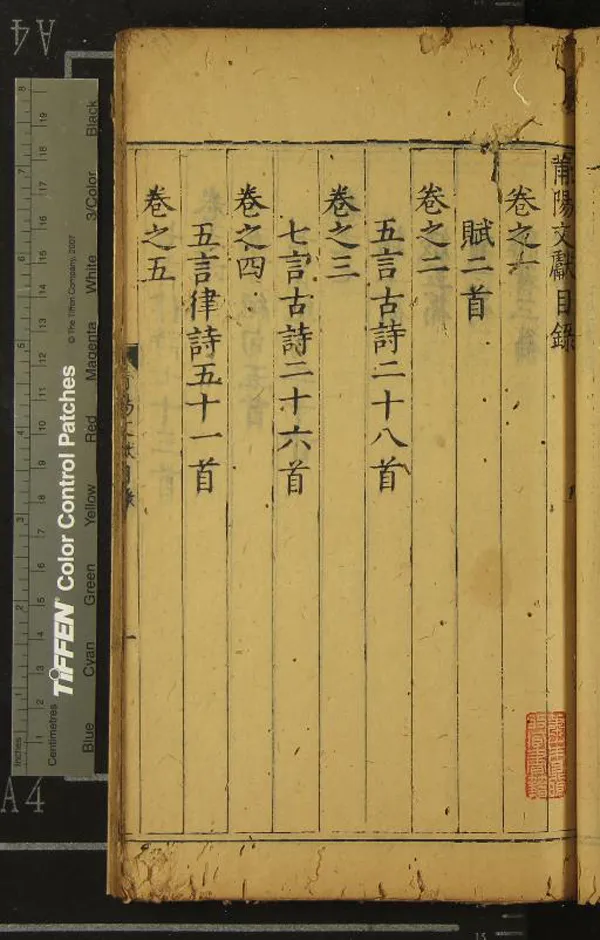 莆陽文獻目錄
卷之一
賦二首
卷之二
五言古詩二十八首
卷之三
七言古詩二十六首
卷之四
五言律詩五十一首
卷之五
A4
A4
TIFFEN Color Control Patches
© The Tiffen Company, 2007
Blue Cyan Green Yellow Red Magenta White 3/Color Black
Inches 1 2 3 4 5 6 7 8
Centimetres 1 2 3 4 5 6 7 8 9 10 11 12 13 14 15 16 17 18 19